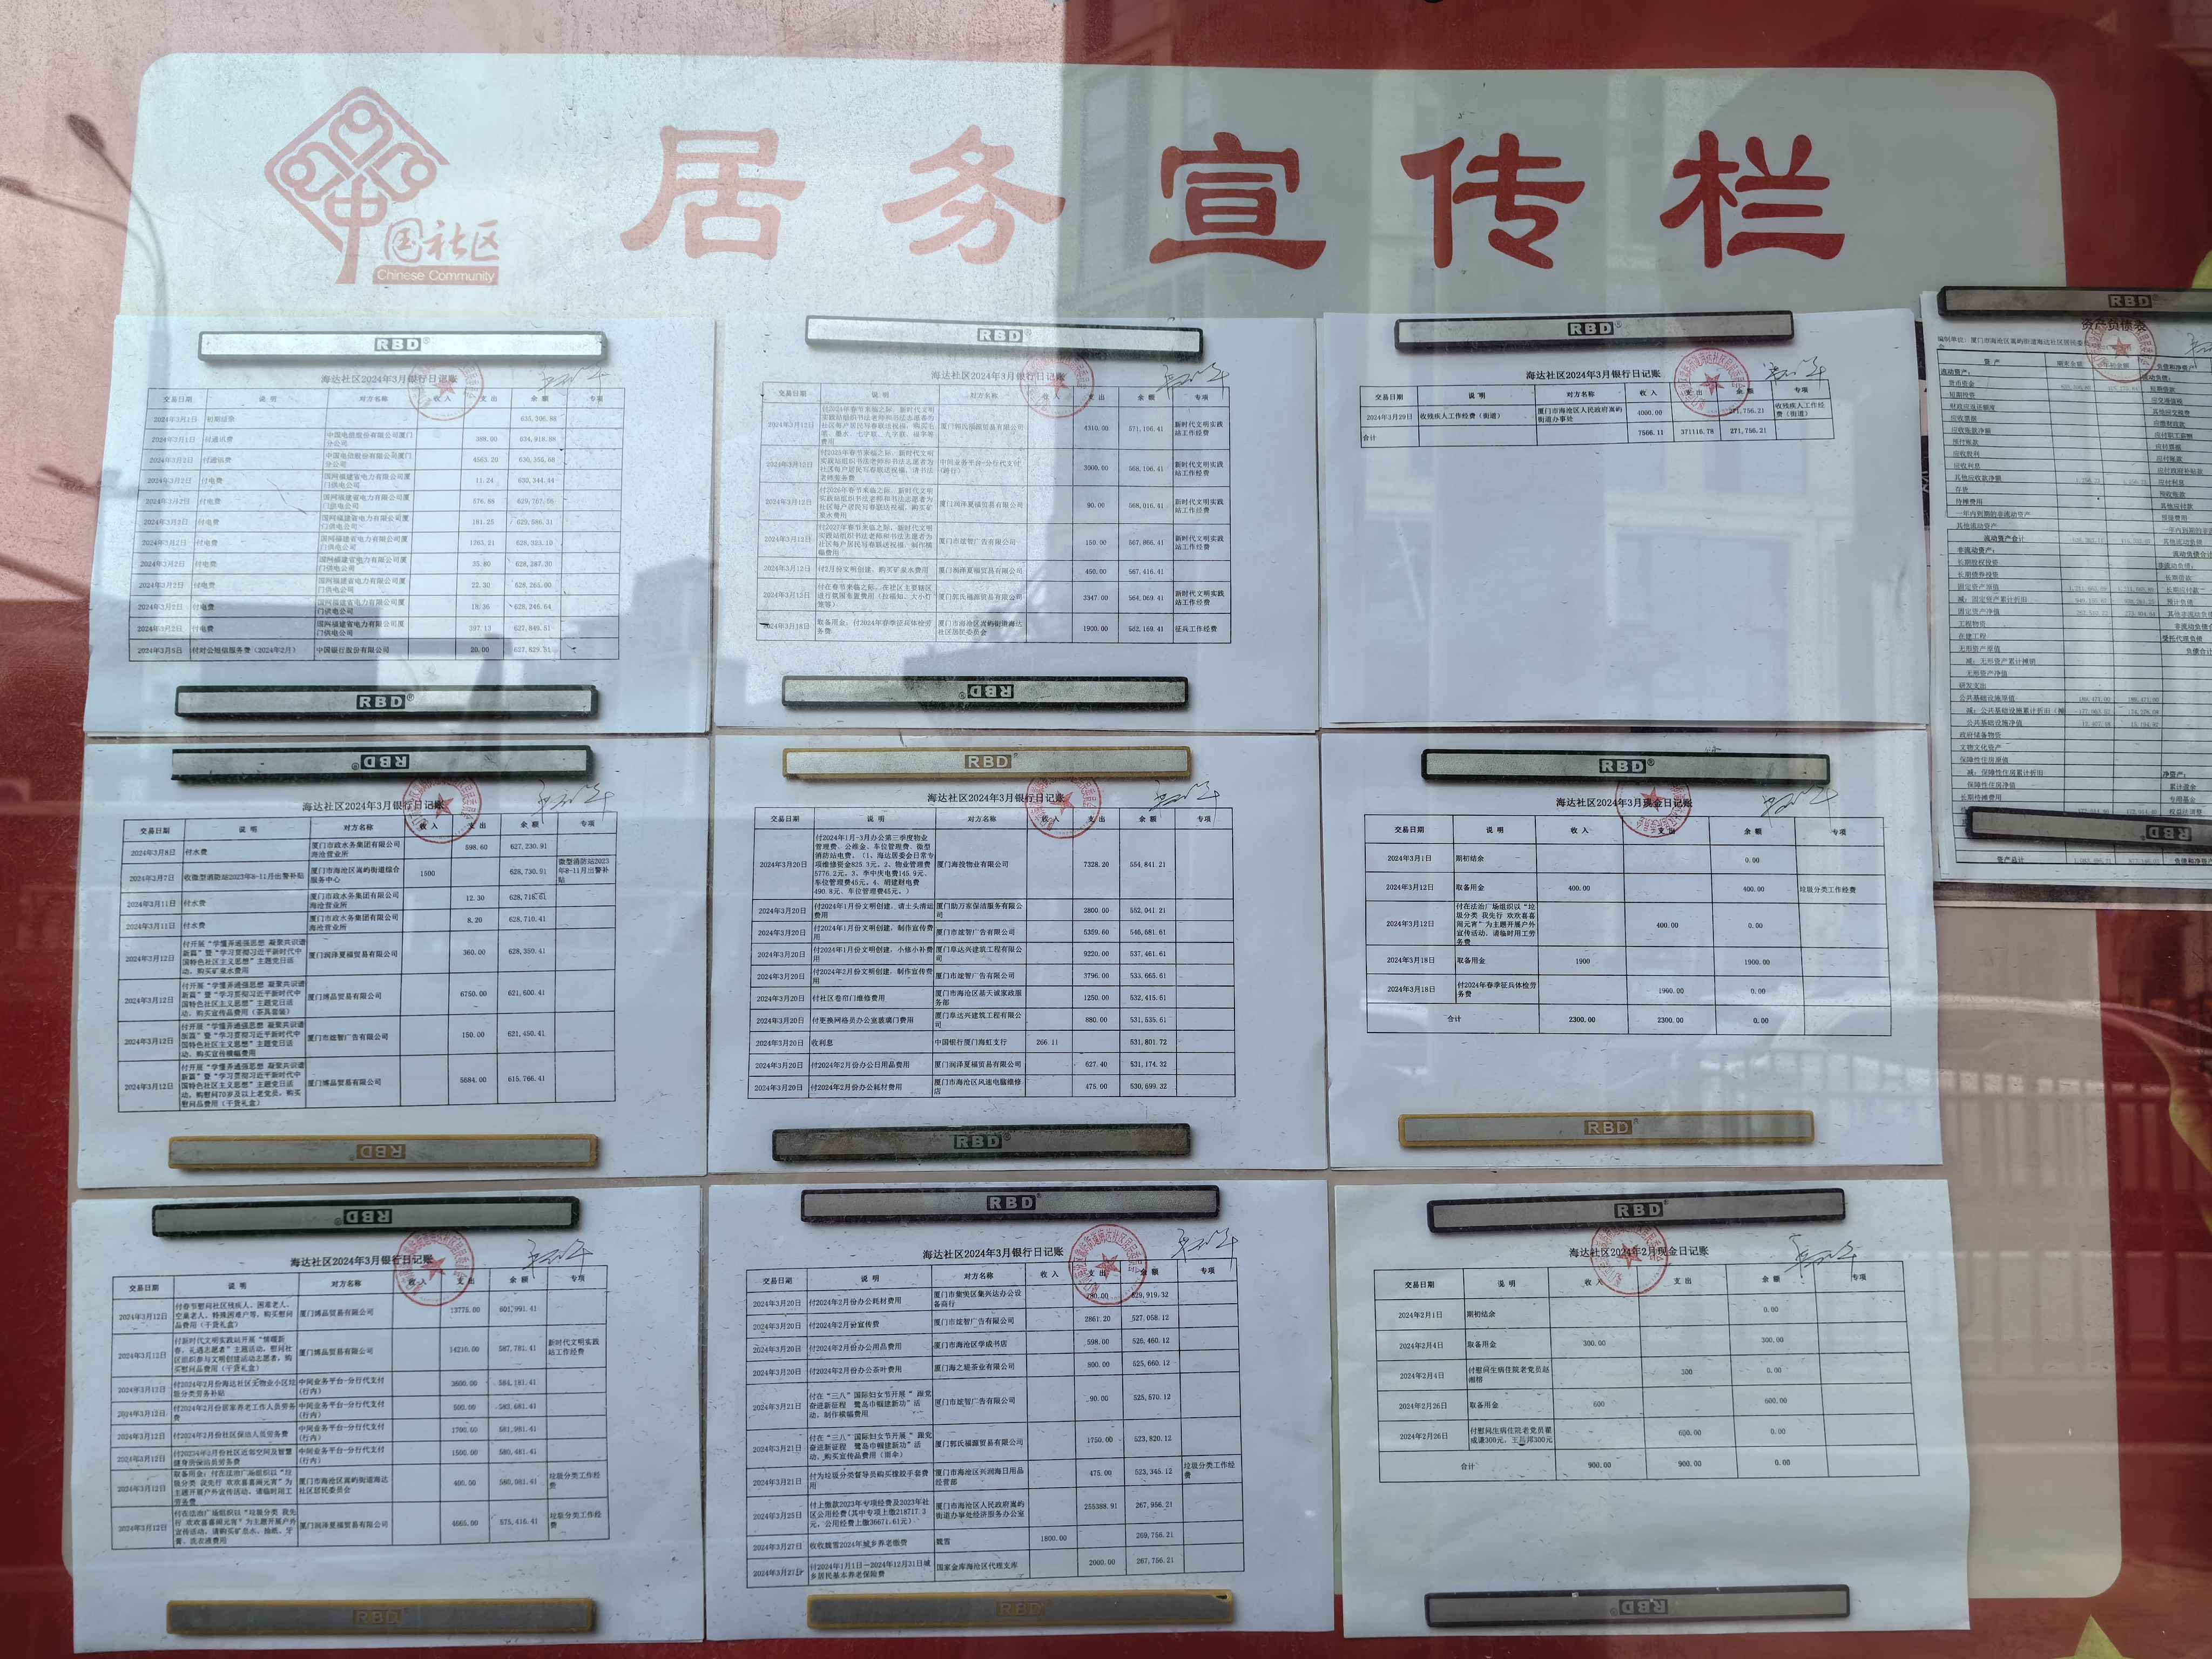 居务宣传栏
中国社区
Chinese Community
RBD
海达社区2024年3月银行日记账
交易日期 说明 对方名称 收入 支出 余额 专项
2024年3月1日 初期结余 635,306.88
2024年3月1日 付通讯费 中国电信股份有限公司厦门分公司 634,918.88
2024年3月2日 付通讯费 中国电信股份有限公司厦门分公司 4563.20
2024年3月2日 付电费 国网福建省电力有限公司厦门供电公司 11.24 630,344.44
2024年3月2日 付电费 国网福建省电力有限公司厦门供电公司 576.88 629,767.56
2024年3月2日 付电费 国网福建省电力有限公司厦门供电公司 181.25 629,586.31
2024年3月2日 付电费 国网福建省电力有限公司厦门供电公司 1263.21 628,323.10
2024年3月2日 付电费 国网福建省电力有限公司厦门供电公司 35.80 628,287.30
2024年3月2日 付电费 国网福建省电力有限公司厦门供电公司 22.30 628,265.00
2024年3月2日 付电费 国网福建省电力有限公司厦门供电公司 18.36 628,246.64
2024年3月2日 付电费 国网福建省电力有限公司厦门供电公司 397.13 627,849.51
2024年3月5日 付对公短信服务费(2024年2月) 中国银行股份有限公司 20.00 627,829.51
RBD
RBD
海达社区2024年3月银行日记账
交易日期 说明 对方名称 收入 支出 余额 专项
2024年3月12日 付2024年春节来临之际,新时代文明实践站组织书法老师和书法志愿者为社区每户居民写春联送祝福,购买 厦门郭氏福源贸易有限公司 4310.00 571,106.41 新时代文明实践站工作经费
2024年3月12日 付2025年春节来临之际,新时代文明实践站组织书法老师和书法志愿者为社区每户居民写春联送祝福,请书法老师劳务费 中间业务平台-分行代支付(跨行) 3000.00 568,106.41 新时代文明实践站工作经费
2024年3月12日 付2026年春节来临之际,新时代文明实践站组织书法老师和书法志愿者为社区每户居民写春联送祝福,购买矿泉水费用 厦门润泽夏福贸易有限公司 90.00 568,016.41 新时代文明实践站工作经费
2024年3月12日 付2027年春节来临之际,新时代文明实践站组织书法老师和书法志愿者为社区每户居民写春联送祝福,制作横幅费用 厦门市竑智广告有限公司 150.00 567,866.41 新时代文明实践站工作经费
2024年3月12日 付2月份文明创建,购买矿泉水费用 厦门润泽夏福贸易有限公司 450.00 567,416.41
2024年3月12日 付在春节来临之际,在社区主要辖区进行氛围布置费用(拉福知、大小灯笼等) 厦门郭氏福源贸易有限公司 3347.00 564,069.41 新时代文明实践站工作经费
2024年3月18日 取备用金,付2024年春季征兵体检劳务费 厦门市海沧区嵩屿街道海达社区居民委员会 1900.00 562,169.41 征兵工作经费
RBD
RBD
海达社区2024年3月银行日记账
交易日期 说明 对方名称 收入 支出 余额 专项
2024年3月29日 收残疾人工作经费(街道) 厦门市海沧区人民政府嵩屿街道办事处 4000.00 271,756.21 收残疾人工作经费(街道)
合计 7566.11 371116.78 271,756.21
RBD
资产负债表
编制单位:厦门市海沧区嵩屿街道海达社区居民委员会
资产 期末余额 负债和净资产
流动资产: 流动负债:
货币资金 短期借款
短期投资 应交增值税
财政应返还额度 其他应交税费
应收票据 应缴财政款
应收账款净额 应付职工薪酬
预付账款 应付票据
应收股利 应付账款
应收利息 应付政府补贴款
其他应收款净额 应付利息
存货 预收账款
待摊费用 其他应付款
一年内到期的非流动资产 预提费用
其他流动资产 一年内到期的非流
流动资产合计 其他流动负债
非流动资产: 流动负债合计
长期股权投资 非流动负债:
长期债券投资 长期借款
固定资产原值 长期应付款
减:固定资产累计折旧 预计负债
固定资产净值 其他非流动负债
工程物资 非流动负债合
在建工程 受托代理负债
无形资产原值 负债合计
减:无形资产累计摊销
无形资产净值
研发支出
公共基础设施原值 189,471.00 189,471.00
减:公共基础设施累计折旧(摊
公共基础设施净值
政府储备物资
文物文化资产
保障性住房原值
减:保障性住房累计折旧 净资产:
保障性住房净值 累计盈余
长期待摊费用 专用基金
权益法调整
RBD
资产总计
RBD
海达社区2024年3月银行日记账
交易日期 说明 对方名称 收入 支出 余额 专项
2024年3月8日 付水费 厦门市政水务集团有限公司海沧营业所 598.60 627,230.91
2024年3月7日 收微型消防站2023年8-11月出警补贴 厦门市海沧区嵩屿街道综合服务中心 1500 628,730.91 微型消防站2023年8-11月出警补贴
2024年3月11日 付水费 厦门市政水务集团有限公司海沧营业所 12.30 628,718.61
2024年3月11日 付水费 厦门市政水务集团有限公司海沧营业所 8.20 628,710.41
2024年3月12日 付开展“学懂弄通强思想 凝聚共识谱新篇”暨“学习贯彻习近平新时代中国特色社区主义思想”主题党日活动,购买矿泉水费用 厦门润泽夏福贸易有限公司 360.00 628,350.41
2024年3月12日 付开展“学懂弄通强思想 凝聚共识谱新篇”暨“学习贯彻习近平新时代中国特色社区主义思想”主题党日活动,购买宣传品费用(茶具套装) 厦门博品贸易有限公司 6750.00 621,600.41
2024年3月12日 付开展“学懂弄通强思想 凝聚共识谱新篇”暨“学习贯彻习近平新时代中国特色社区主义思想”主题党日活动,购买宣传横幅费用 厦门市竑智广告有限公司 150.00 621,450.41
2024年3月12日 付开展“学懂弄通强思想 凝聚共识谱新篇”暨“学习贯彻习近平新时代中国特色社区主义思想”主题党日活动,购慰问70岁及以上老党员,购买慰问品费用(干货礼盒) 厦门博品贸易有限公司 5684.00 615,766.41
RBD
RBD
海达社区2024年3月银行日记账
交易日期 说明 对方名称 收入 支出 余额 专项
2024年3月20日 付2024年1月-3月办公第三季度物业管理费、公维金、车位管理费、微型消防站电费,(1、海达居委会日常专项维修资金825.3元。2、物业管理费5776.2元。3、李中庆电费145.9元、车位管理费45元。4、胡建财电费490.8元、车位管理费45元。) 厦门海投物业有限公司 7328.20 554,841.21
2024年3月20日 付2024年1月份文明创建,请土头清运费用 厦门助万家保洁服务有限公司 2800.00 552,041.21
2024年3月20日 付2024年1月份文明创建,制作宣传费用 厦门市竑智广告有限公司 5359.60 546,681.61
2024年3月20日 付2024年1月份文明创建,小修小补费用 厦门阜达兴建筑工程有限公司 9220.00 537,461.61
2024年3月20日 付2024年2月份文明创建,制作宣传费用 厦门市竑智广告有限公司 3796.00 533,665.61
2024年3月20日 付社区卷帘门维修费用 厦门市海沧区基天诚家政服务部 1250.00 532,415.61
2024年3月20日 付更换网格员办公室玻璃门费用 厦门阜达兴建筑工程有限公司 880.00 531,535.61
2024年3月20日 收利息 中国银行厦门海虹支行 266.11 531,801.72
2024年3月20日 付2024年2月份办公日用品费用 厦门润泽夏福贸易有限公司 627.40 531,174.32
2024年3月20日 付2024年2月份办公耗材费用 厦门市海沧区风速电脑维修店 475.00 530,699.32
RBD
RBD
海达社区2024年3月现金日记账
交易日期 说明 收入 支出 余额 专项
2024年3月1日 期初结余 0.00
2024年3月12日 取备用金 400.00 400.00 垃圾分类工作经费
2024年3月12日 付在法治广场组织以“垃圾分类 我先行 欢欢喜喜闹元宵”为主题开展户外宣传活动,请临时用工劳务费 400.00 0.00
2024年3月18日 取备用金 1900 1900.00
2024年3月18日 付2024年春季征兵体检劳务费 1900.00 0.00
合计 2300.00 2300.00 0.00
RBD
RBD
海达社区2024年3月银行日记账
交易日期 说明 对方名称 收入 支出 余额 专项
2024年3月12日 付春节慰问社区残疾人、困难老人、空巢老人、特殊困难户等,购买慰问品费用(干货礼盒) 厦门博品贸易有限公司 13775.00 601,991.41
2024年3月12日 付新时代文明实践站开展“情暖新春,礼遇志愿者”主题活动,慰问社区组织参与文明创建活动志愿者,购买慰问品费用(干货礼盒) 厦门博品贸易有限公司 14210.00 587,781.41 新时代文明实践站工作经费
2024年3月12日 付2024年2月份海达社区无物业小区垃圾分类劳务补贴 中间业务平台-分行代支付(行内) 3600.00 584,181.41
2024年3月12日 付2024年2月份居家养老工作人员劳务费 中间业务平台-分行代支付(行内) 500.00 583,681.41
2024年3月12日 付2024年2月份社区保洁人员劳务费 中间业务平台-分行代支付(行内) 1700.00 581,981.41
2024年3月12日 付2024年2月份社区近邻空间及智慧健身房保洁员劳务费 中间业务平台-分行代支付(行内) 1500.00 580,481.41
2024年3月12日 取备用金:付在法治广场组织以“垃圾分类 我先行 欢欢喜喜闹元宵”为主题开展户外宣传活动,请临时用工劳务费 厦门市海沧区嵩屿街道海达社区居民委员会 400.00 580,081.41 垃圾分类工作经费
2024年3月12日 付在法治广场组织以“垃圾分类 我先行 欢欢喜喜闹元宵”为主题开展户外宣传活动,请购买矿泉水、抽纸、牙膏、洗衣液费用 厦门润泽夏福贸易有限公司 4665.00 575,416.41 垃圾分类工作经费
RBD
RBD
海达社区2024年3月银行日记账
交易日期 说明 对方名称 收入 支出 余额 专项
2024年3月20日 付2024年2月份办公耗材费用 厦门市集美区集兴达办公设备商行 780.00 529,919.32
2024年3月20日 付2024年2月份宣传费 厦门市竑智广告有限公司 2861.20 527,058.12
2024年3月20日 付2024年2月份办公用品费用 厦门市海沧区学成书店 598.00 526,460.12
2024年3月20日 付2024年2月份办公茶叶费用 厦门海之堤茶业有限公司 800.00 525,660.12
2024年3月21日 付在“三八”国际妇女节开展“ 跟党奋进新征程 鹭岛巾帼建新功”活动,制作横幅费用 厦门市竑智广告有限公司 90.00 525,570.12
2024年3月21日 付在“三八”国际妇女节开展“ 跟党奋进新征程 鹭岛巾帼建新功”活动,购买宣传品费用(雨伞) 厦门郭氏福源贸易有限公司 1750.00 523,820.12
2024年3月21日 付为垃圾分类督导员购买橡胶手套费用 厦门市海沧区兴润海日用品经营部 475.00 523,345.12 垃圾分类工作经费
2024年3月25日 付上缴款2023年专项经费及2023年社区公用经费(其中专项上缴218717.3元,公用经费上缴36671.61元) 厦门市海沧区人民政府嵩屿街道办事处经济服务办公室 255388.91 267,956.21
2024年3月27日 收收魏雪2024年城乡养老缴费 魏雪 1800.00 269,756.21
2024年3月27日 付2024年1月1日-2024年12月31日城乡居民基本养老保险费 国家金库海沧区代理支库 2000.00 267,756.21
RBD
RBD
海达社区2024年2月现金日记账
交易日期 说明 收入 支出 余额 专项
2024年2月1日 期初结余 0.00
2024年2月4日 取备用金 300.00 300.00
2024年2月4日 付慰问生病住院老党员赵湘榕 300 0.00
2024年2月26日 取备用金 600 600.00
2024年2月26日 付慰问生病住院老党员翟成谦300元、王昌邦300元 600.00 0.00
合计 900.00 900.00 0.00
RBD